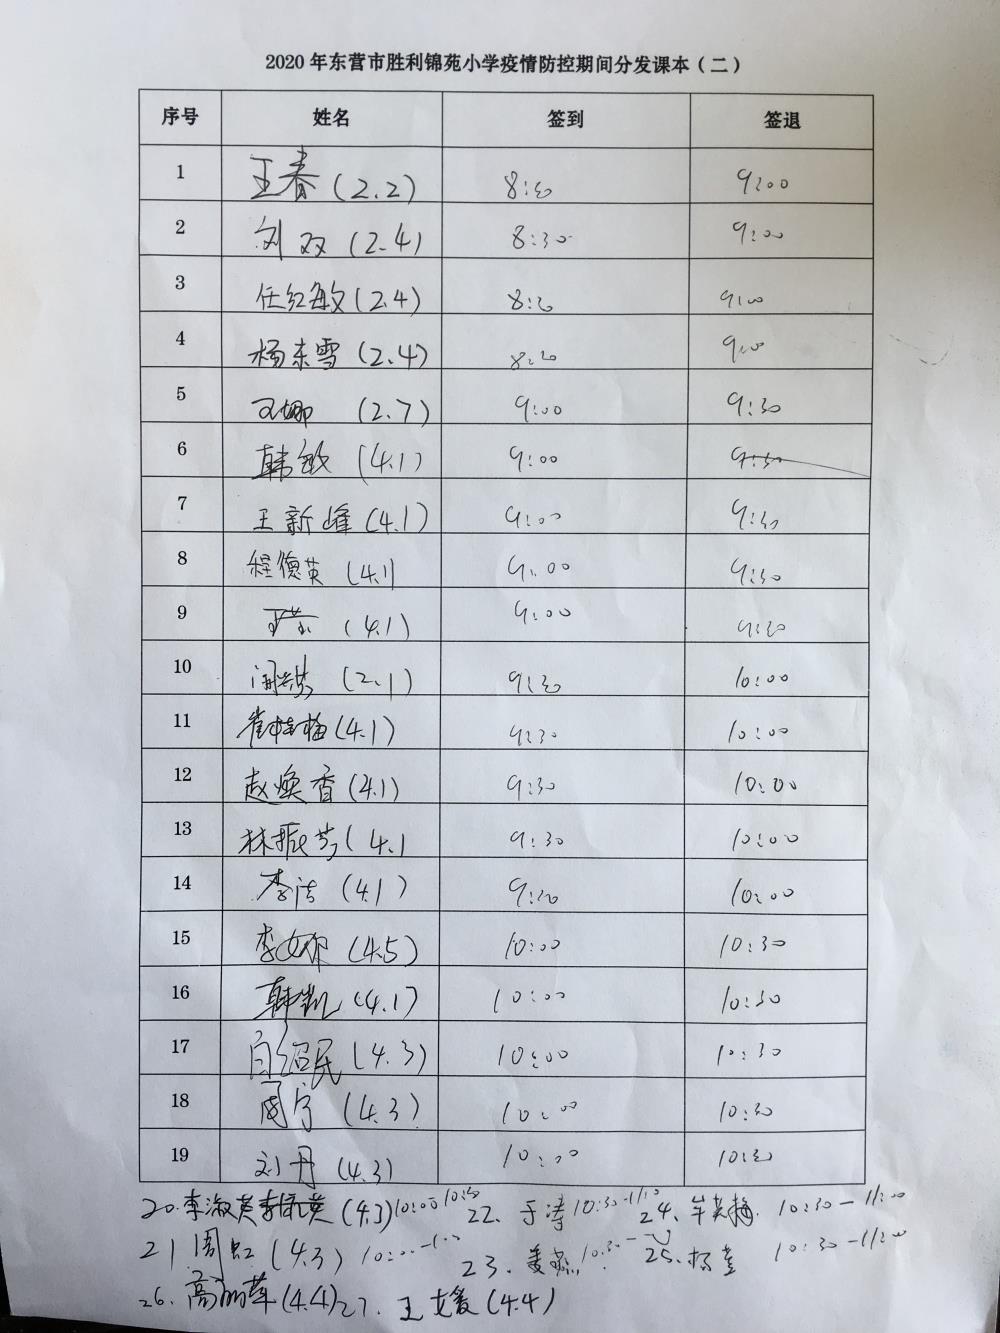 2020年东营市胜利锦苑小学疫情防控期间分发课本（二）
序号 姓名 签到 签退
1 王春(2.2) 8:30 9:00
2 刘双(2.4) 8:30 9:00
3 任红敏(2.4) 8:30 9:00
4 杨东雪(2.4) 8:30 9:00
5 王娜 (2.7) 9:00 9:30
6 韩敏 (4.1) 9:00 9:30
7 王新峰(4.1) 9:00 9:30
8 程德英 (4.1) 9:00 9:30
9 (4.1) 9:00 9:30
10 (2.1) 9:30 10:00
11 崔桂梅(4.1) 9:30 10:00
12 赵焕香(4.1) 9:30 10:00
13 林振芳(4.1 9:30 10:00
14 李洁 (4.1) 9:30 10:00
15 (4.5) 10:00 10:30
16 韩凯(4.1) 10:00 10:30
17 (4.3) 10:00 10:30
18 周宁 (4.3) 10:00 10:30
19 刘丹 (4.3) 10:00 10:30
20.李淑英 (4.3) 22. 于涛 10:30-11:00 24. 牟英梅. 10:30-11:00
21 周虹 (4.3) 23. 25. 10:30-11:00
26. 高丽萍(4.4) 27. 王文爱(4.4)